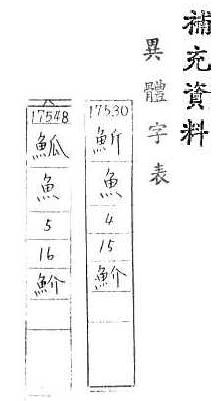 補充資料
異體字表
17530
魚
4
15
魪
17548
魚
5
16
魪